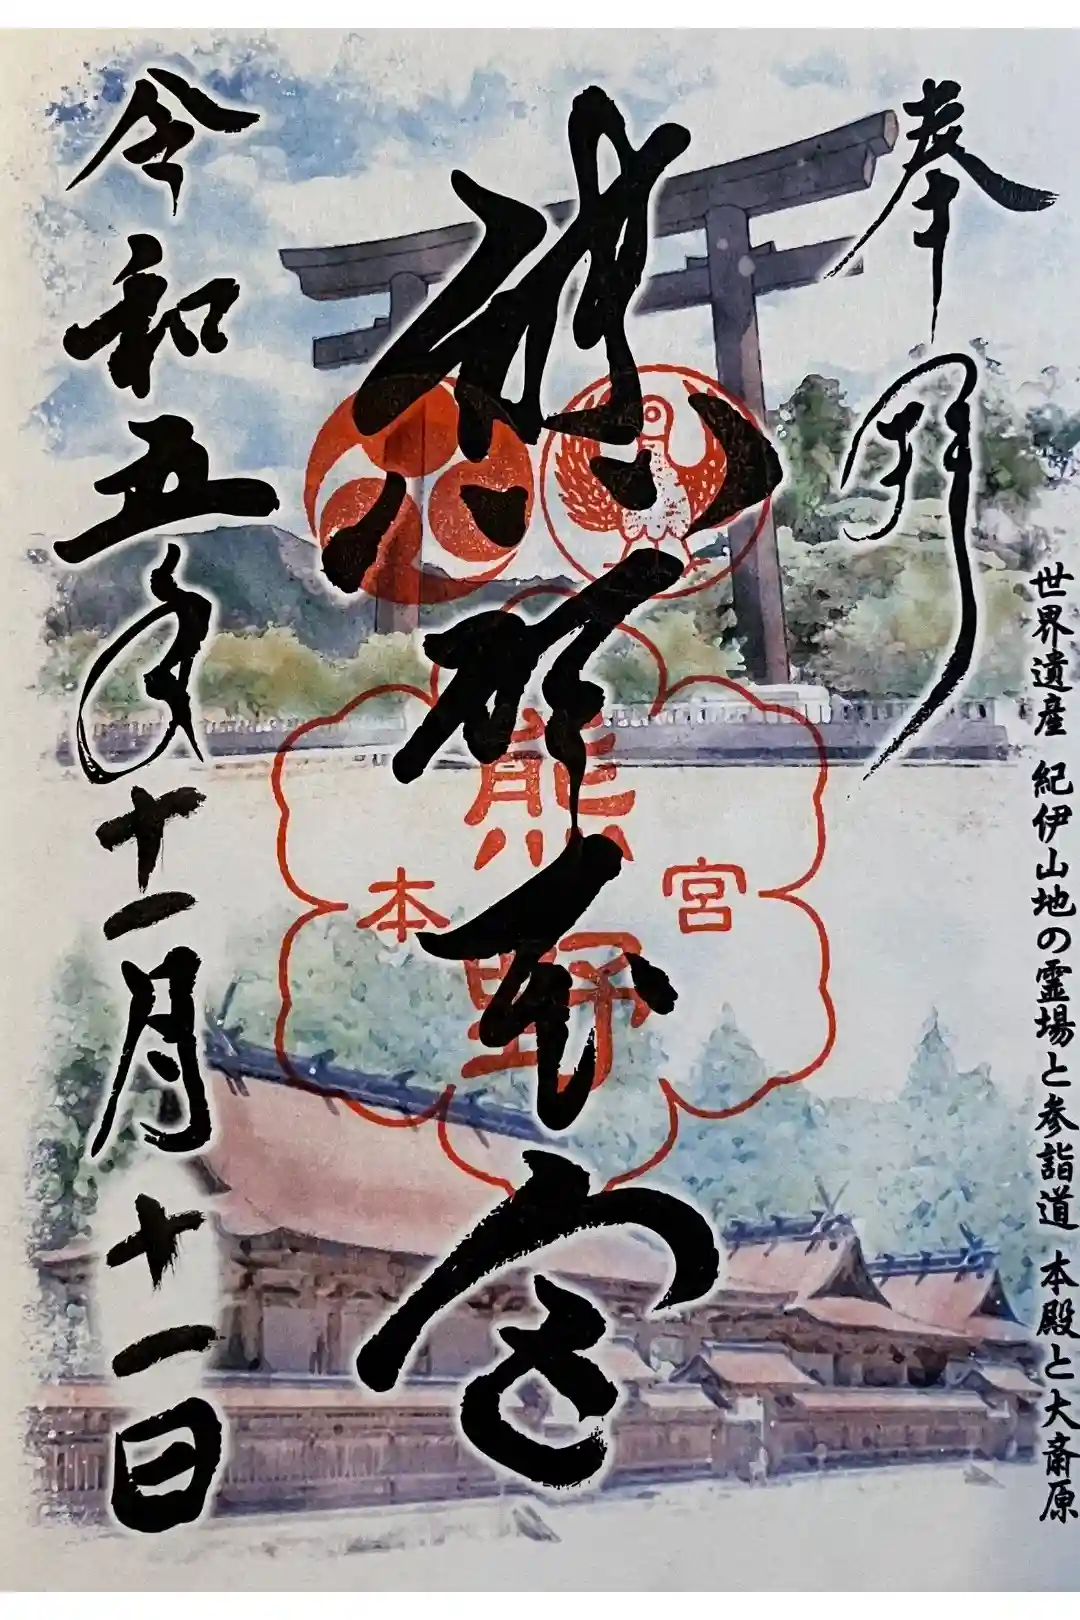 奉拝
世界遺産 紀伊山地の霊場と参詣道 本殿と大斎原
熊野本宮
熊野
本宮
令和五年十一月十一日